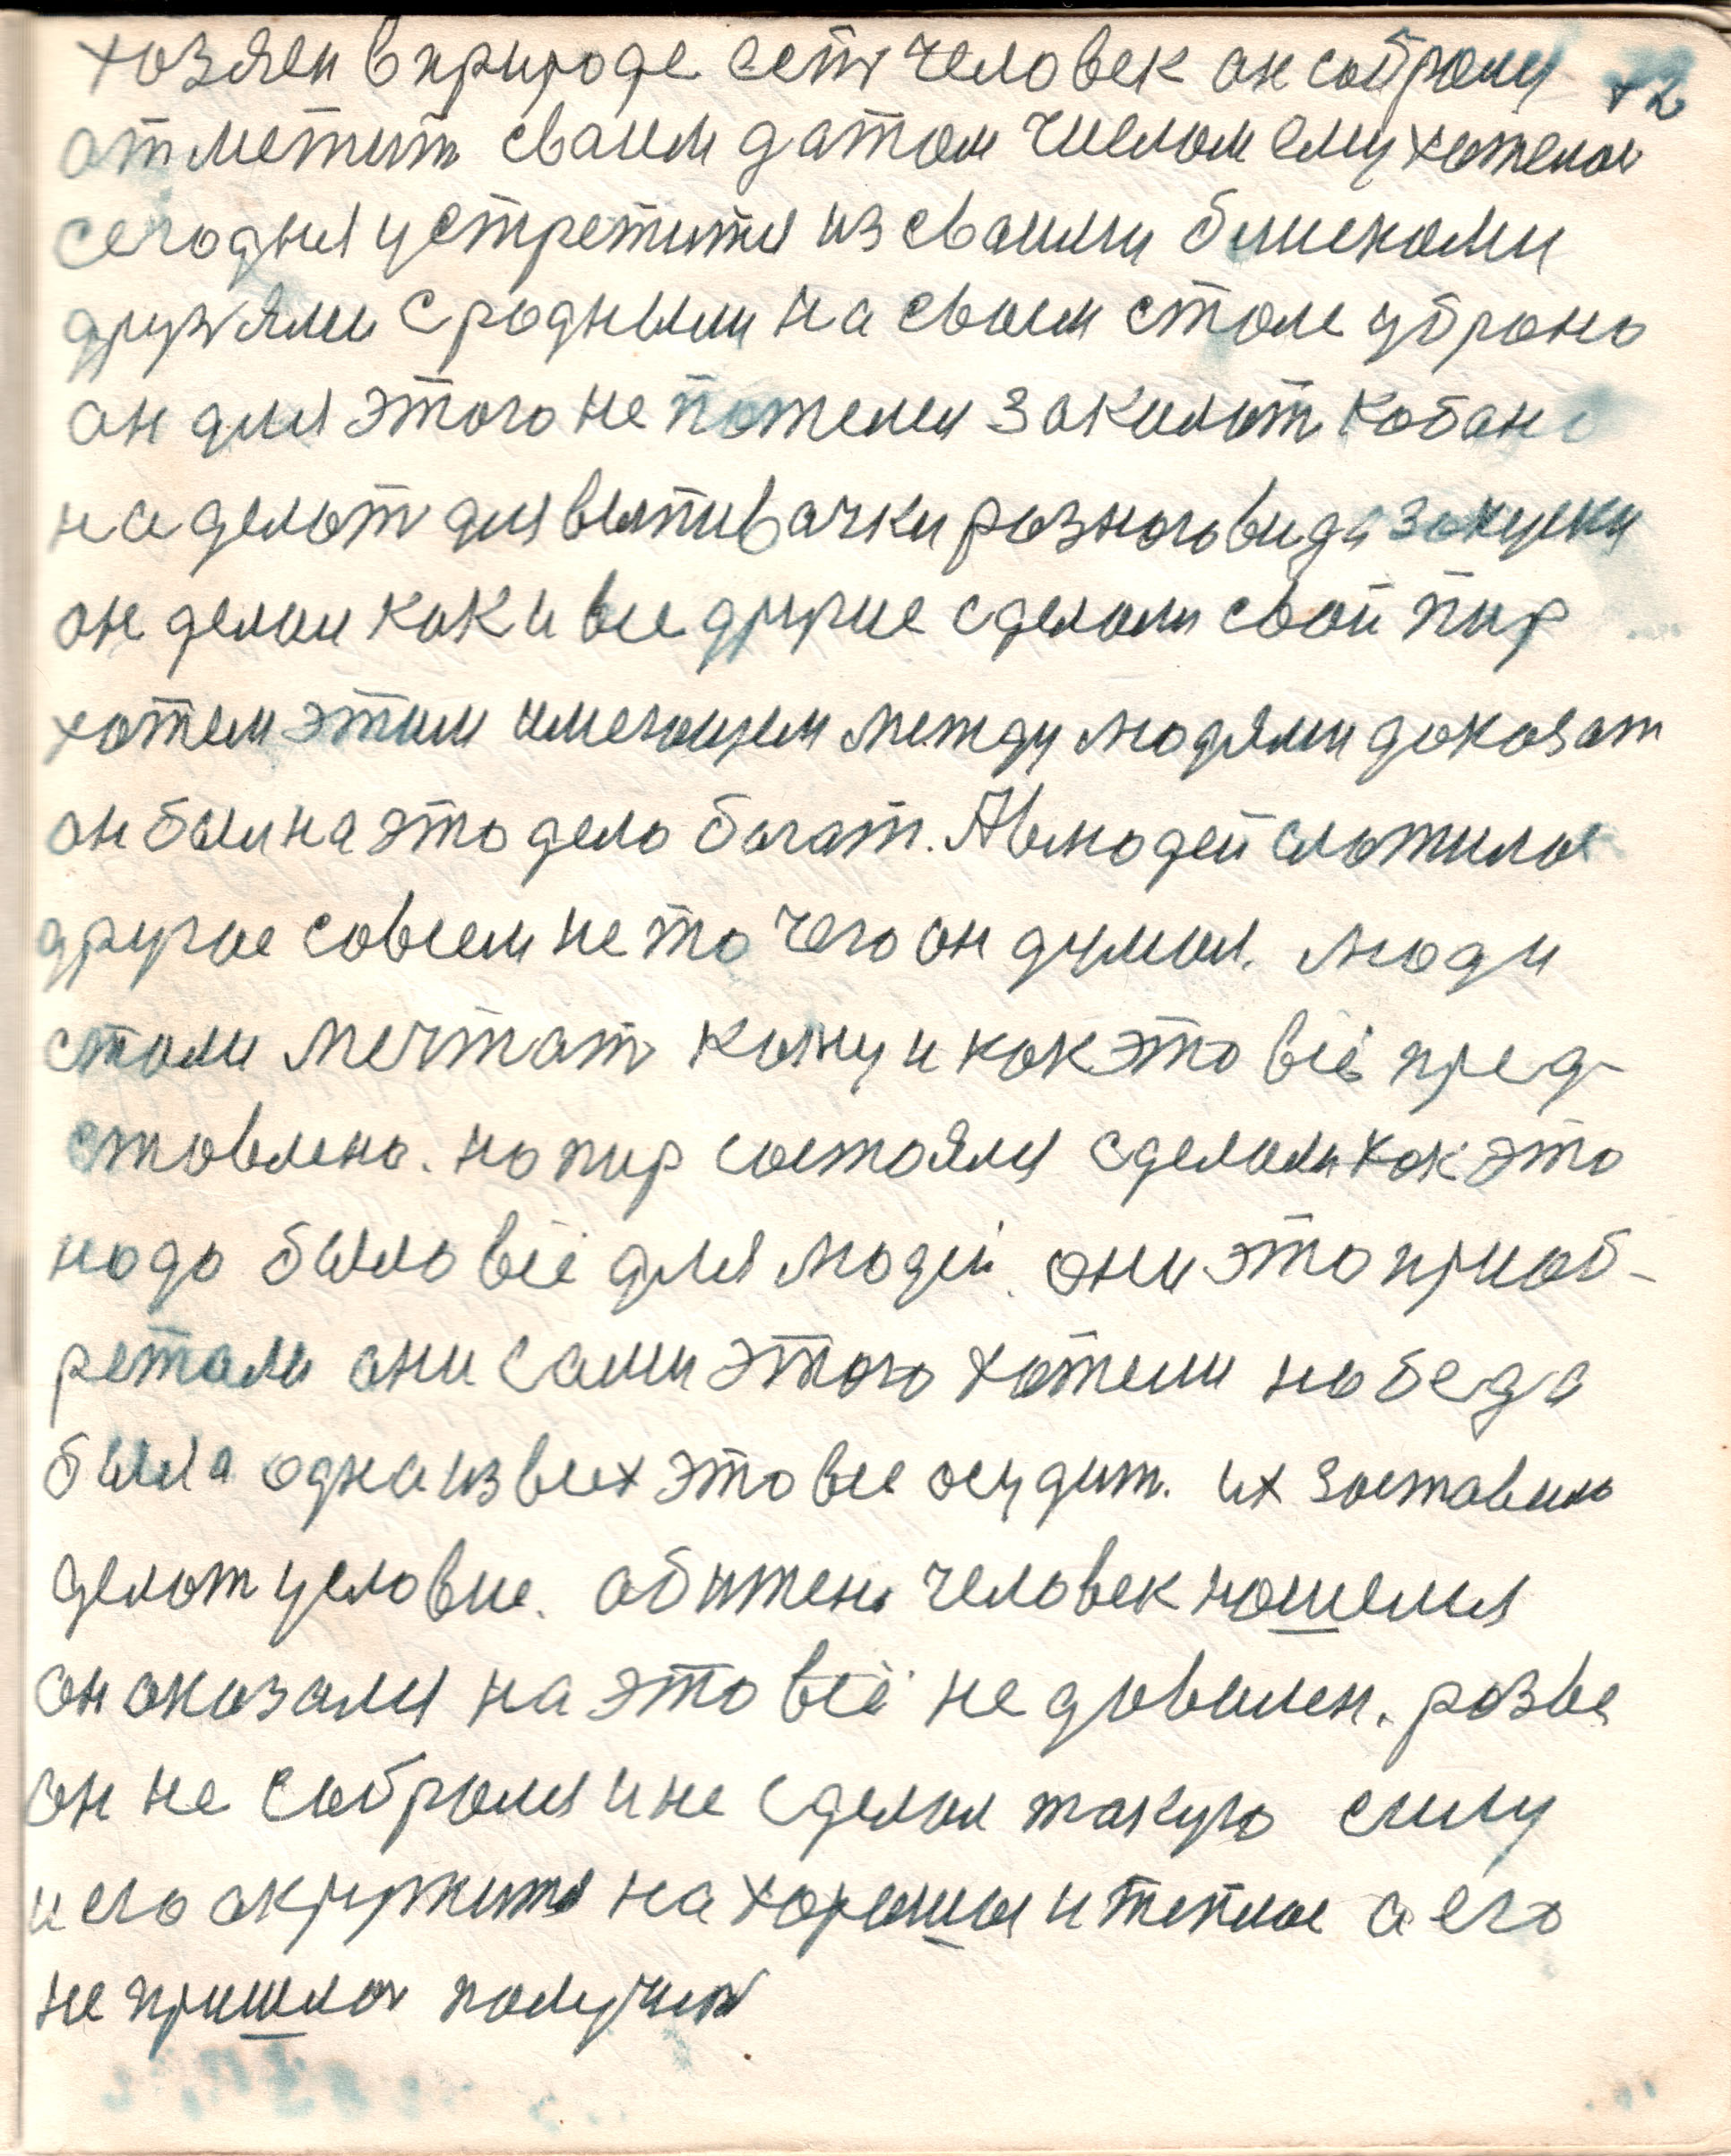 хозяен в природе есть человек он собрался 72
отметит сваим датам числом ему хотелось
сегодня устретится из сваими близкоми
друзьями с родными на своем столе убрано
он для этого не пожелел заколот кабана
наделать для выпивачки разного вида закуски
он делал как и все другие сделали свой пир
хотел этим имеющем между людями доказат
он был на это дело богат. А в людей сложилось
другое совсем не то чего он думал. люди
стали мечтать кому и как это всё пред-
ставлено. но пир состоялся сделали как это
надо было всё для людей. они это приоб-
ретали они сами этого хотели но беда
была одна из всех это все осудит. их заставило
делат условие. обижен человек нашелся
он оказался на это всё не довилен. разве
он не собрался и не сделал такую силу
и его окружится на хорошее и теплое а его
не пришлось получить